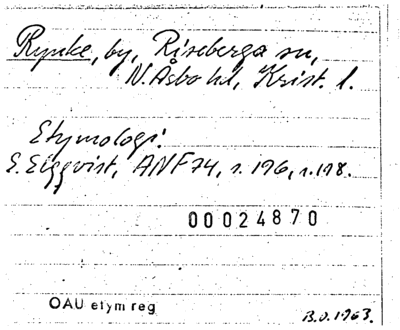 Rynke, by, Riseberga sn,
N. Åsbo hd, Krist. l.
Etymologi:
E. Elgqvist, ANF 74, s. 196, s. 198.
00024870
OAU etym reg
B.O. 1963.